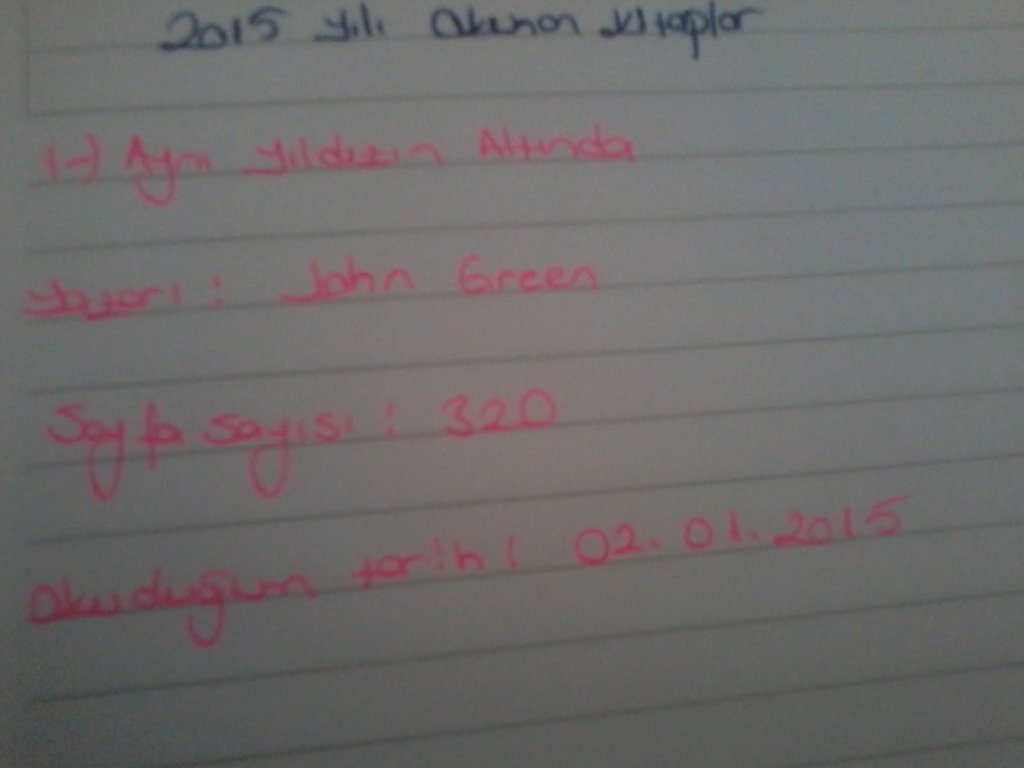 2015 yılı Okunan kitaplar
1-) Aynı Yıldızın Altında
Yazarı : John Green
Sayfa sayısı : 320
Okuduğum tarih : 02.01.2015